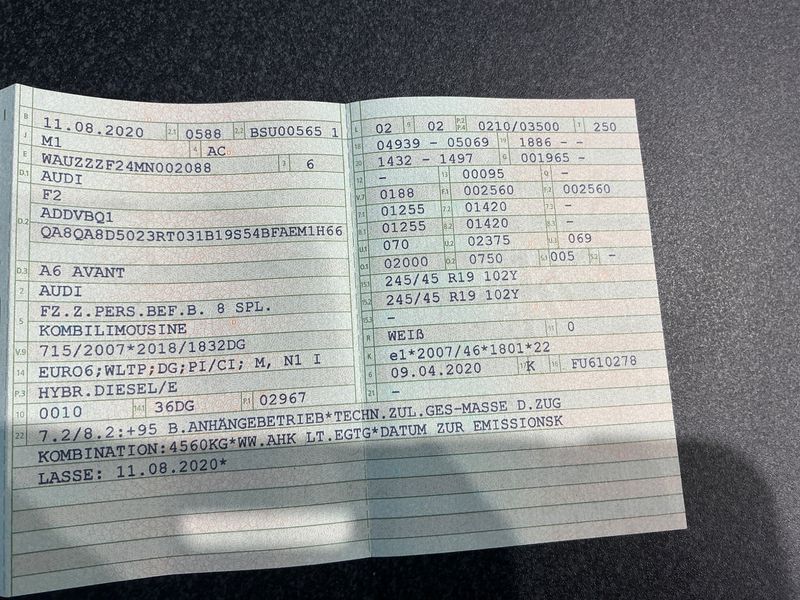 B 11.08.2020 2.1 0588 2.2 BSU00565 1
J M1 4 AC
E WAUZZZF24MN002088 3 6
D.1 AUDI
F2
D.2 ADDVBQ1
QA8QA8D5023RT031B19S54BFAEM1H66
D.3 A6 AVANT
2 AUDI
5 FZ.Z.PERS.BEF.B. 8 SPL.
KOMBILIMOUSINE
V.9 715/2007*2018/1832DG
14 EURO6;WLTP;DG;PI/CI; M, N1 I
P.3 HYBR.DIESEL/E
10 0010 14.1 36DG P.1 02967
22 7.2/8.2:+95 B.ANHÄNGEBETRIEB*TECHN.ZUL.GES-MASSE D.ZUG
KOMBINATION:4560KG*WW.AHK LT.EGTG*DATUM ZUR EMISSIONSK
LASSE: 11.08.2020*
L 02 9 02 P.2 P.4 0210/03500 T 250
18 04939 - 05069 19 1886 - -
20 1432 - 1497 G 001965 -
12 - 13 00095 Q -
V.7 0188 F.1 002560 F.2 002560
7.1 01255 7.2 01420 7.3 -
8.1 01255 8.2 01420 8.3 -
U.1 070 U.2 02375 U.3 069
O.1 02000 O.2 0750 S.1 005 S.2 -
15.1 245/45 R19 102Y
15.2 245/45 R19 102Y
15.3 -
R WEIß 11 0
K e1*2007/46*1801*22
6 09.04.2020 17 K 16 FU610278
21 -